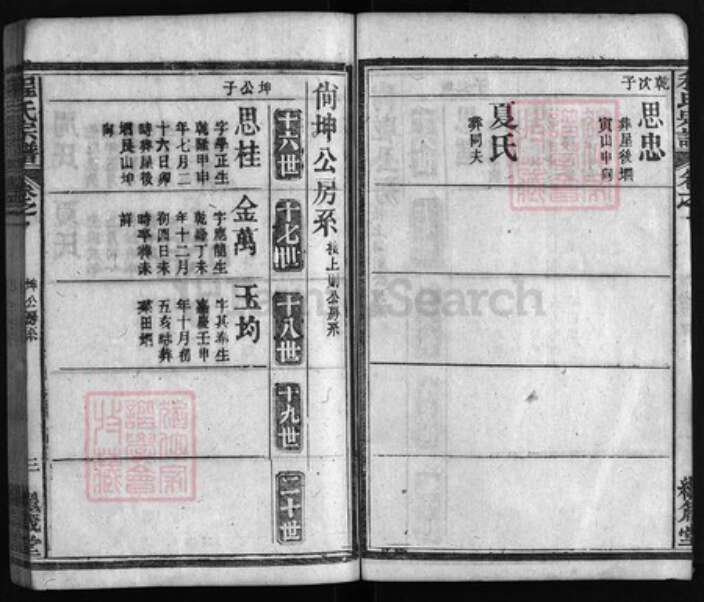 乾沈子
思忠
葬屋後塝
寅山申向
夏氏
葬同夫
尙坤公房系 接上則公房系
十六世
十七世
十八世
十九世
二十世
坤公子
思桂
字學正生
乾隆甲申
年七月二
十六日卯
時葬屋後
塝艮山坤
向
金萬
字應龍生
乾隆丁未
年十二月
初四日未
時卒葬未
詳
玉均
字其為生
嘉慶壬申
年十月初
五亥時葬
程氏宗譜
坤公房系
三
FamilySearch